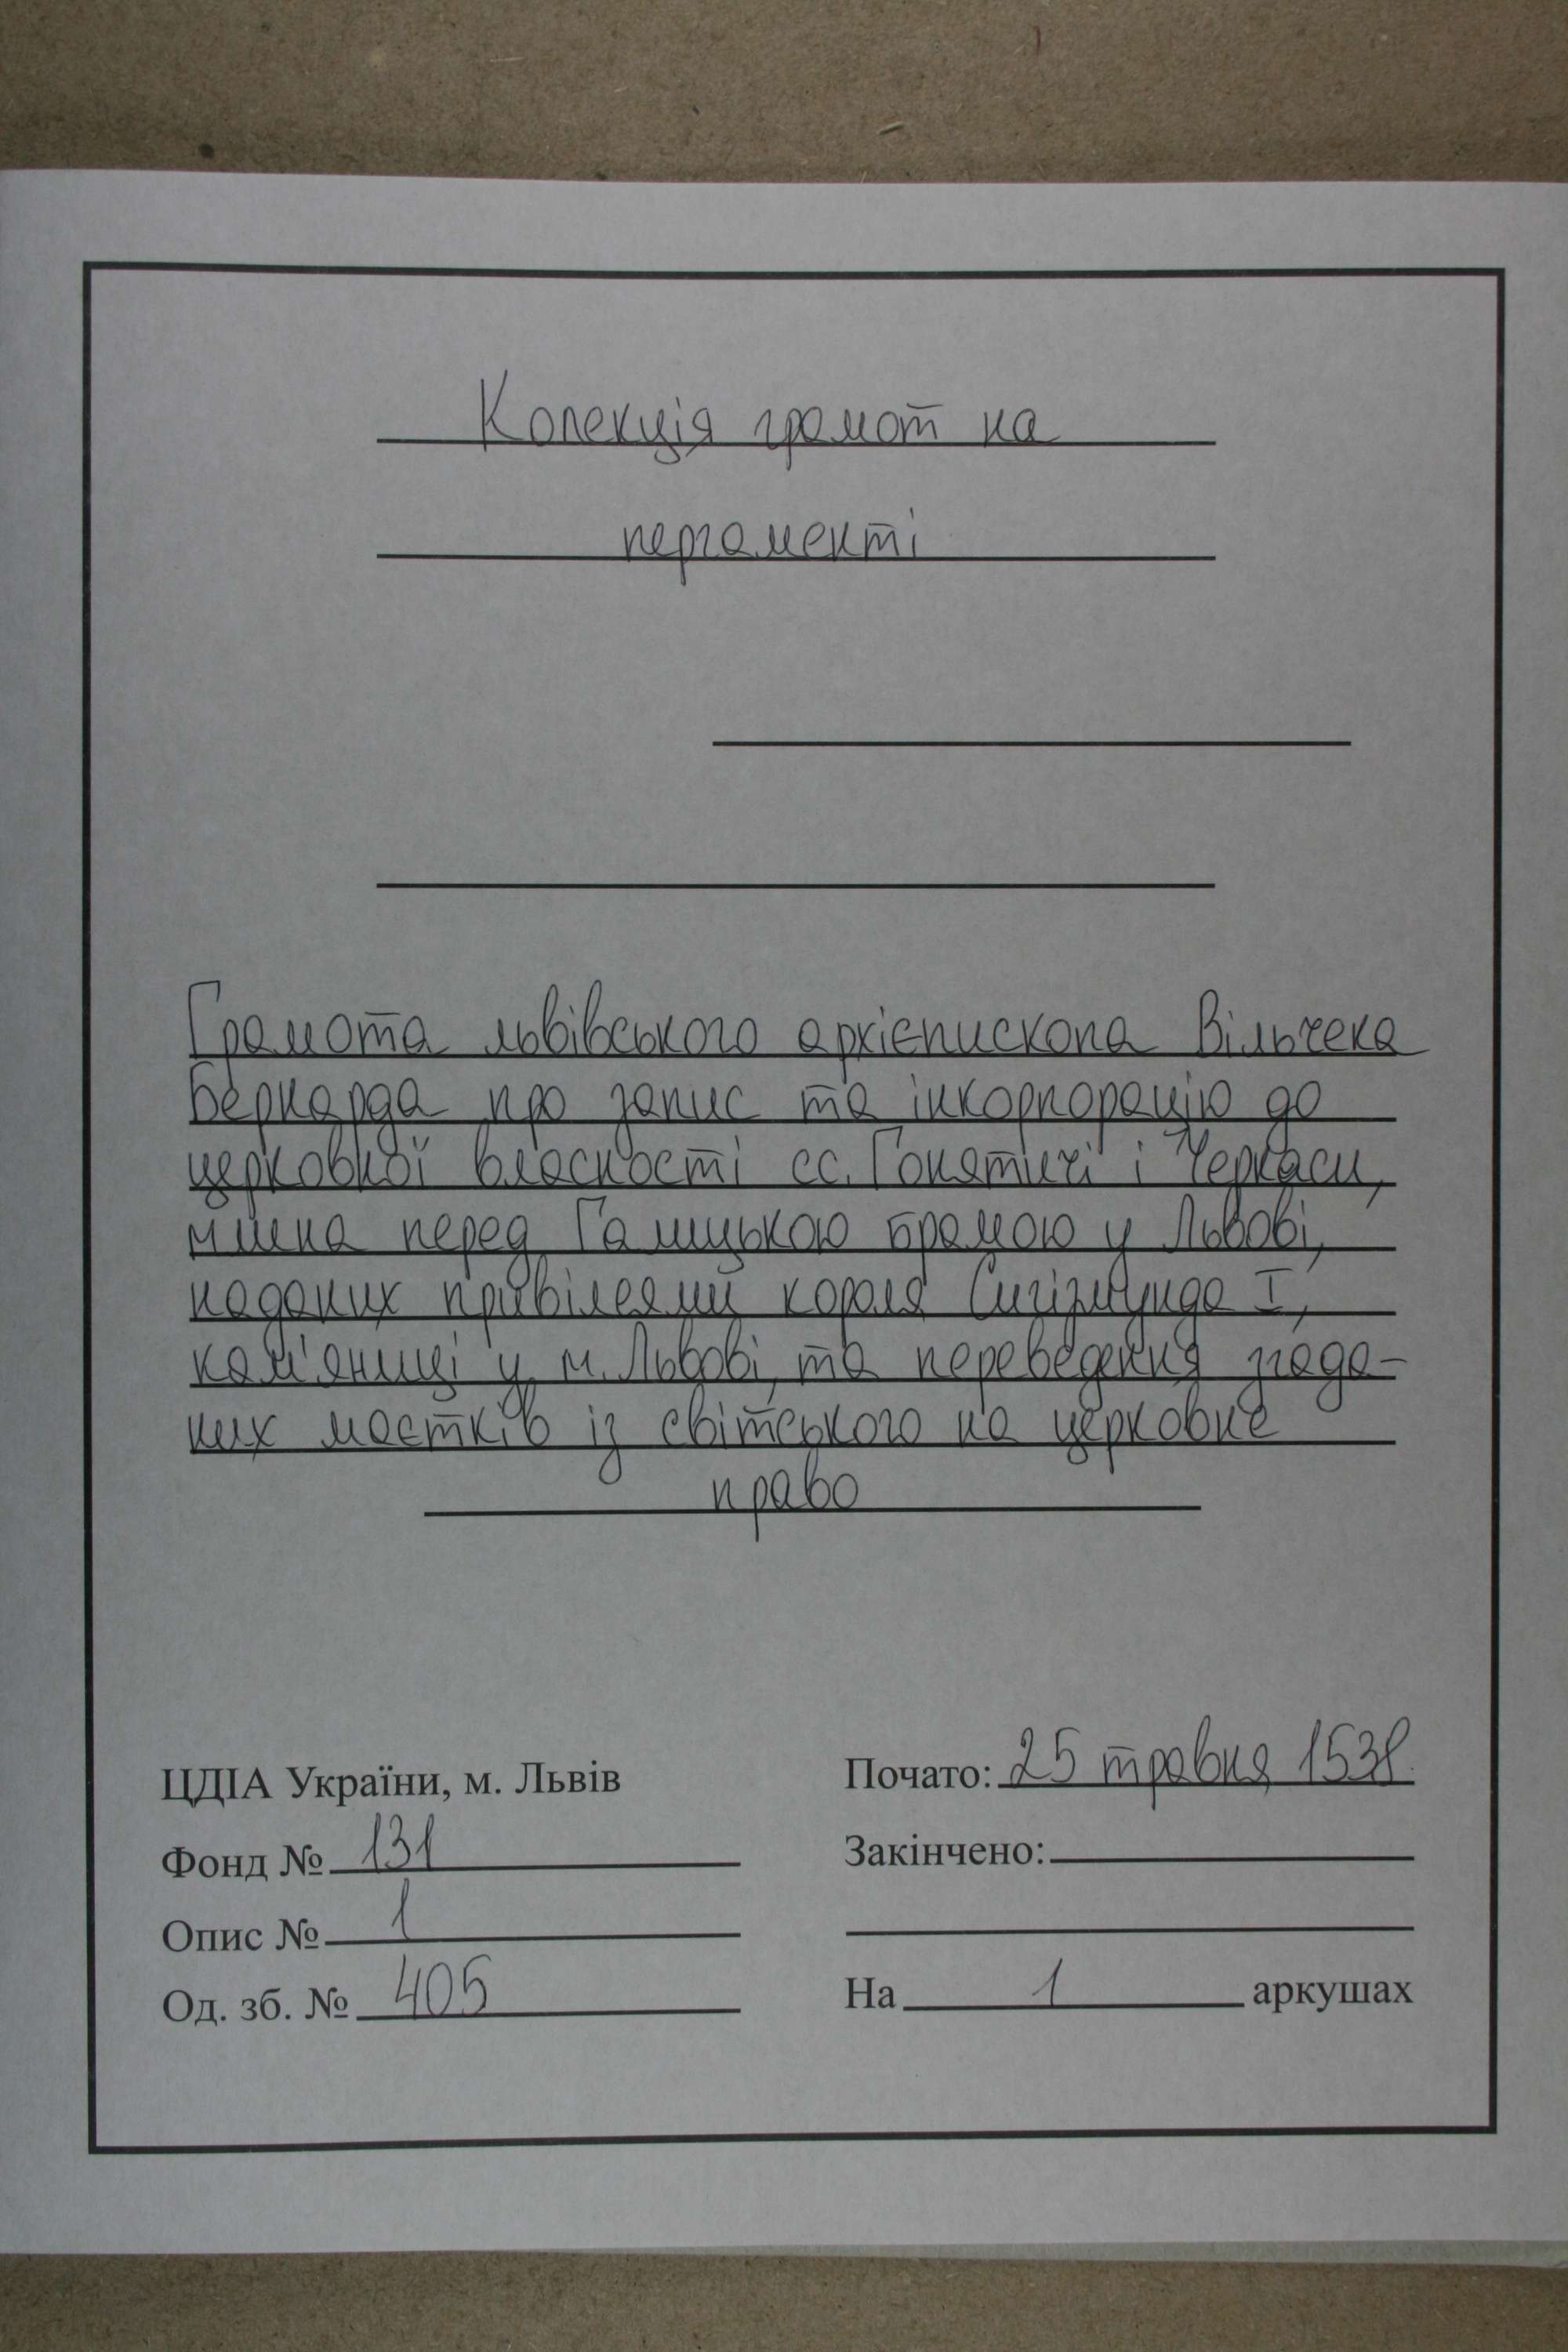 Колекція грамот на
пергаменті
Грамота львівського архієпископа Вільчека
Бернарда про запис та інкорпорацію до
церковної власності сс. Гонятичі і Черкаси,
млина перед Галицькою брамою у Львові,
наданих привілеями короля Сигізмунда І,
кам'яниці у м. Львові, та переведення згада-
них маєтків із світського на церковне
право
ЦДІА України, м. Львів
Почато: 25 травня
Фонд № 131
Закінчено:
Опис № 1
Од. зб. № 405
На 1 аркушах